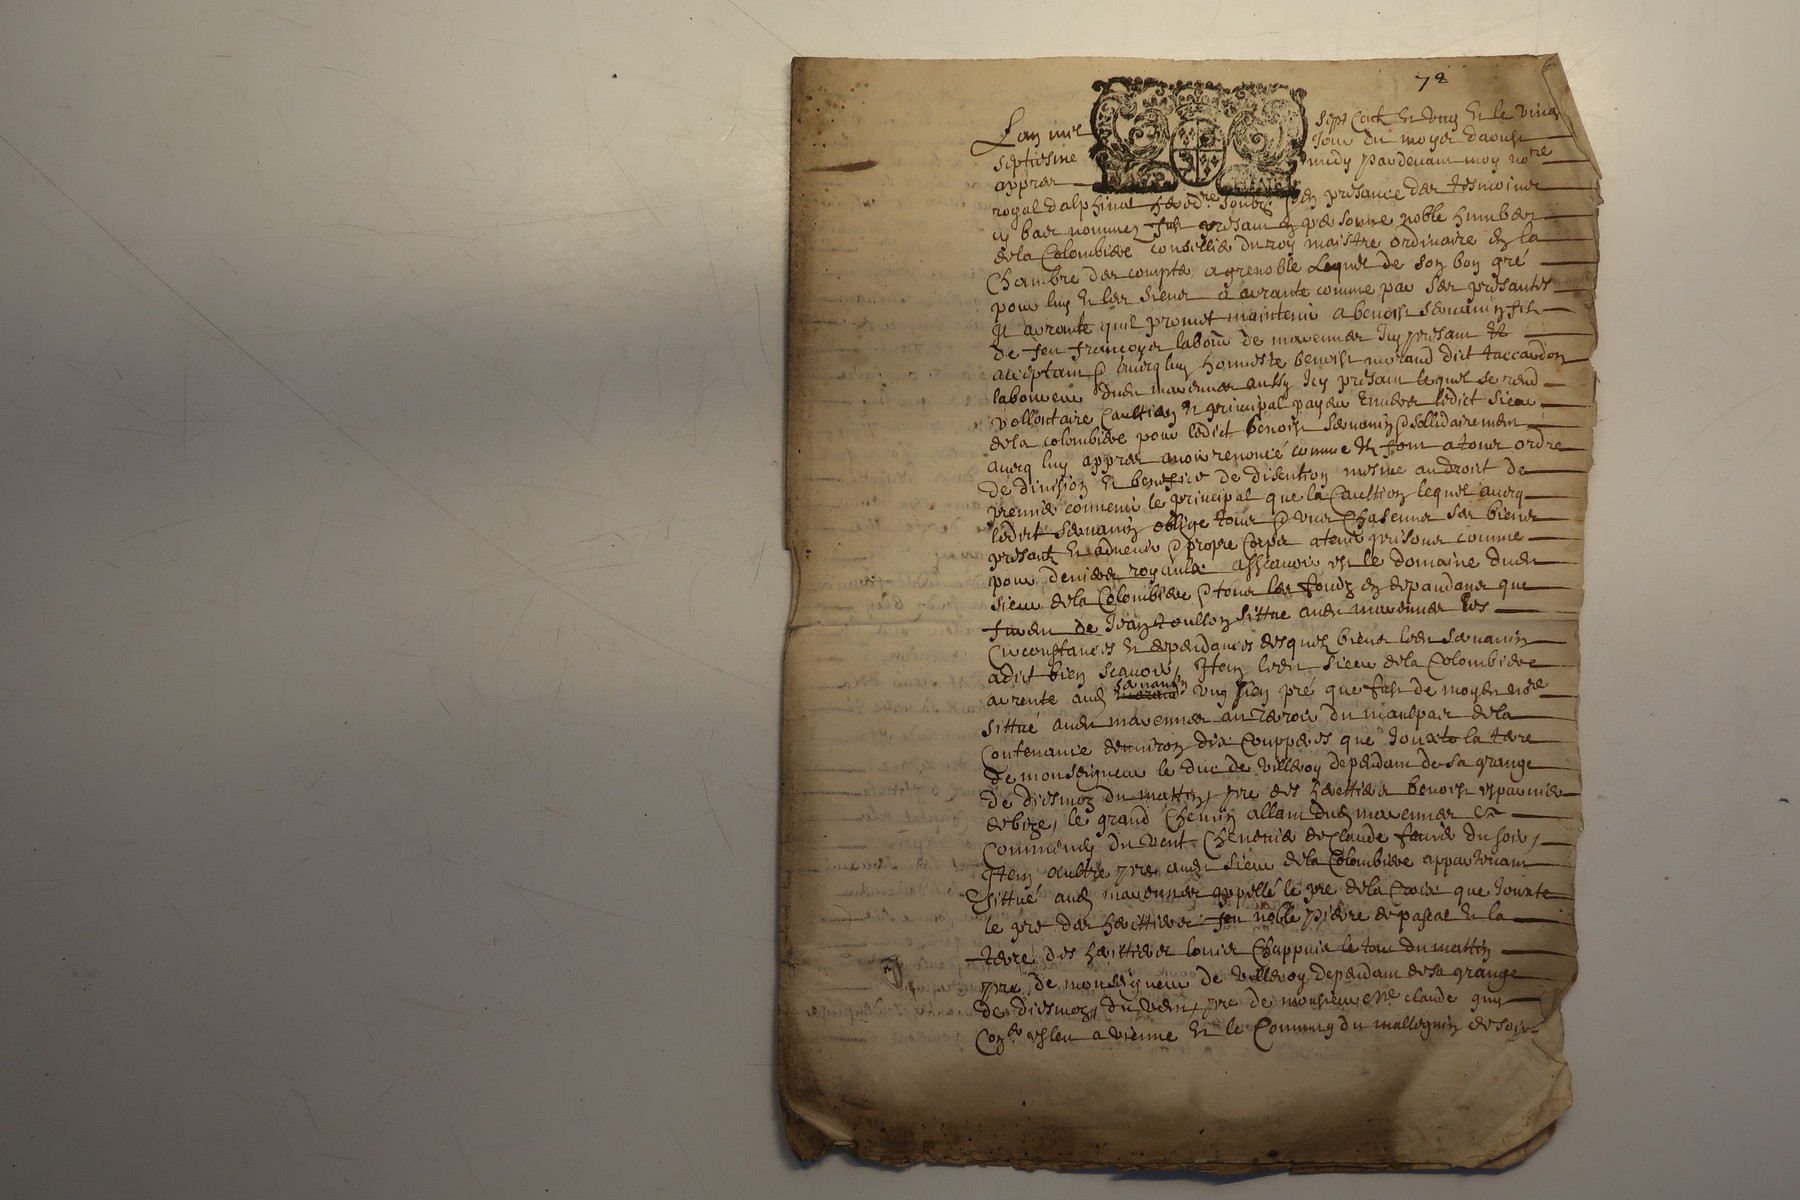 78
Lan mil sept cent et ung et le vingt
septiesme jour du moys daoust
appres midy pardevant moy nore
royal dalphinal heredre soubzné en presance des tesmoins
cy bas nommez fut presant en persome noble humber
de la Colombiere conseillier du roy maistre ordinaire en la
Chambre des compte a grenoble Lequel de son bon gré
pour luy et les siens a arranté comme par ses presantes
Il arrante quil promet maintenir a benoist fils
de feu françoys labour de maxennas Icy presant et
acceptant & avecq luy honneste benoist morand dict
laboureur dud maxennas aussy Icy presant lequel se rend
vollontaire Caultion et principal payeur Envers ledict sieur
de la colombiere pour ledict benoist & sollidairement
avecq luy appres avoir renoncé comme Il font a tous ordre
de division et benefice de disention mesme au droit de
premier convenir le principal que la Caultion lequel avecq
ledict oblige tous & ungs Chascungs ses biens
presant et advenir & propre Corps a tenir prisons comme
pour deniers royaulx assavoir est le domaine dud
sieur de la Colombiere & tous les fondz en depandans que
furent de Jean Toullon sittue aud maxennas les
Circonstances et dependances desquelz biens led
a dict bien scavoir, Item ledit sieur de la Colombiere
arrente aud ung sien pré que fust de moyen nore
sittué aud maxennas au terroir du maulpas de la
Contenance denviron dix Coupperes que Jouxte la terre
de monseigneur le duc de Villeroy dependant de sa grange
de diesmoz du mattin, pre des herettiers benoist
de bize, le grand Chemin allant dud maxennas
du vent de Claude du soir,
Item aultre pre aud sieur de la Colombiere appartenant
sittué aud maxennas appellé le pre de la Croix que Jouxte
le pre des herittiers feu noble piere de pascal et la
terre des herittiers louis Chappuis le tout du mattin
pre de monseigneur de Villeroy dependant de sa grange
de diesmoz, du vent, pre de monsieur me claude guy
Coner esleu a vienne et le Commung du de soir